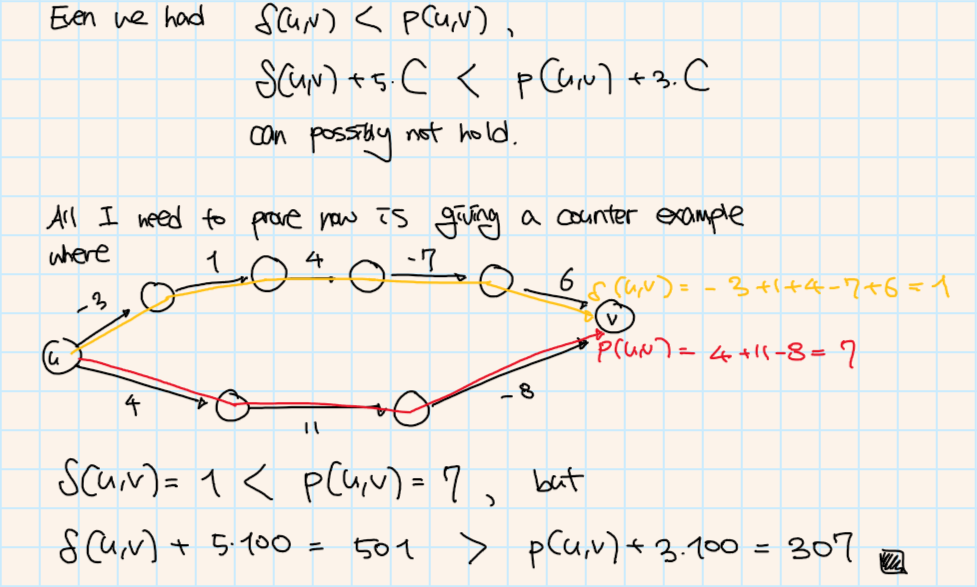 Even we had δ(u,v) < p(u,v),
δ(u,v) + 5·C < p(u,v) + 3·C
can possibly not hold.
All I need to prove now is giving a counter example
where
-3
1
4
-7
6
δ(u,v) = -3+1+4-7+6 = 1
u
v
p(u,v) = 4+11-8 = 7
4
11
-8
δ(u,v) = 1 < p(u,v) = 7, but
δ(u,v) + 5·100 = 501 > p(u,v) + 3·100 = 307